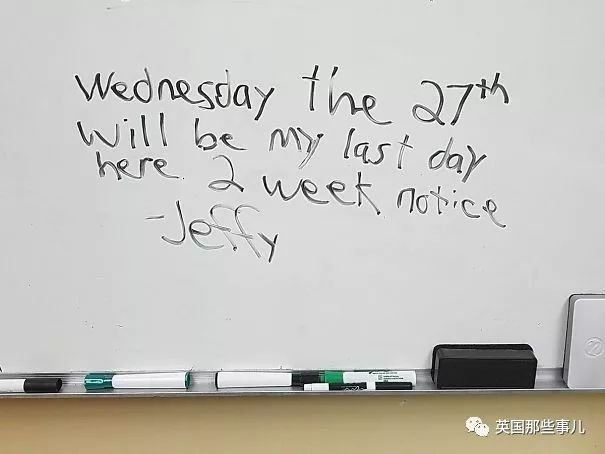 Wednesday the 27th
will be my last day
here. 2 week notice
-Jeffy
英国那些事儿